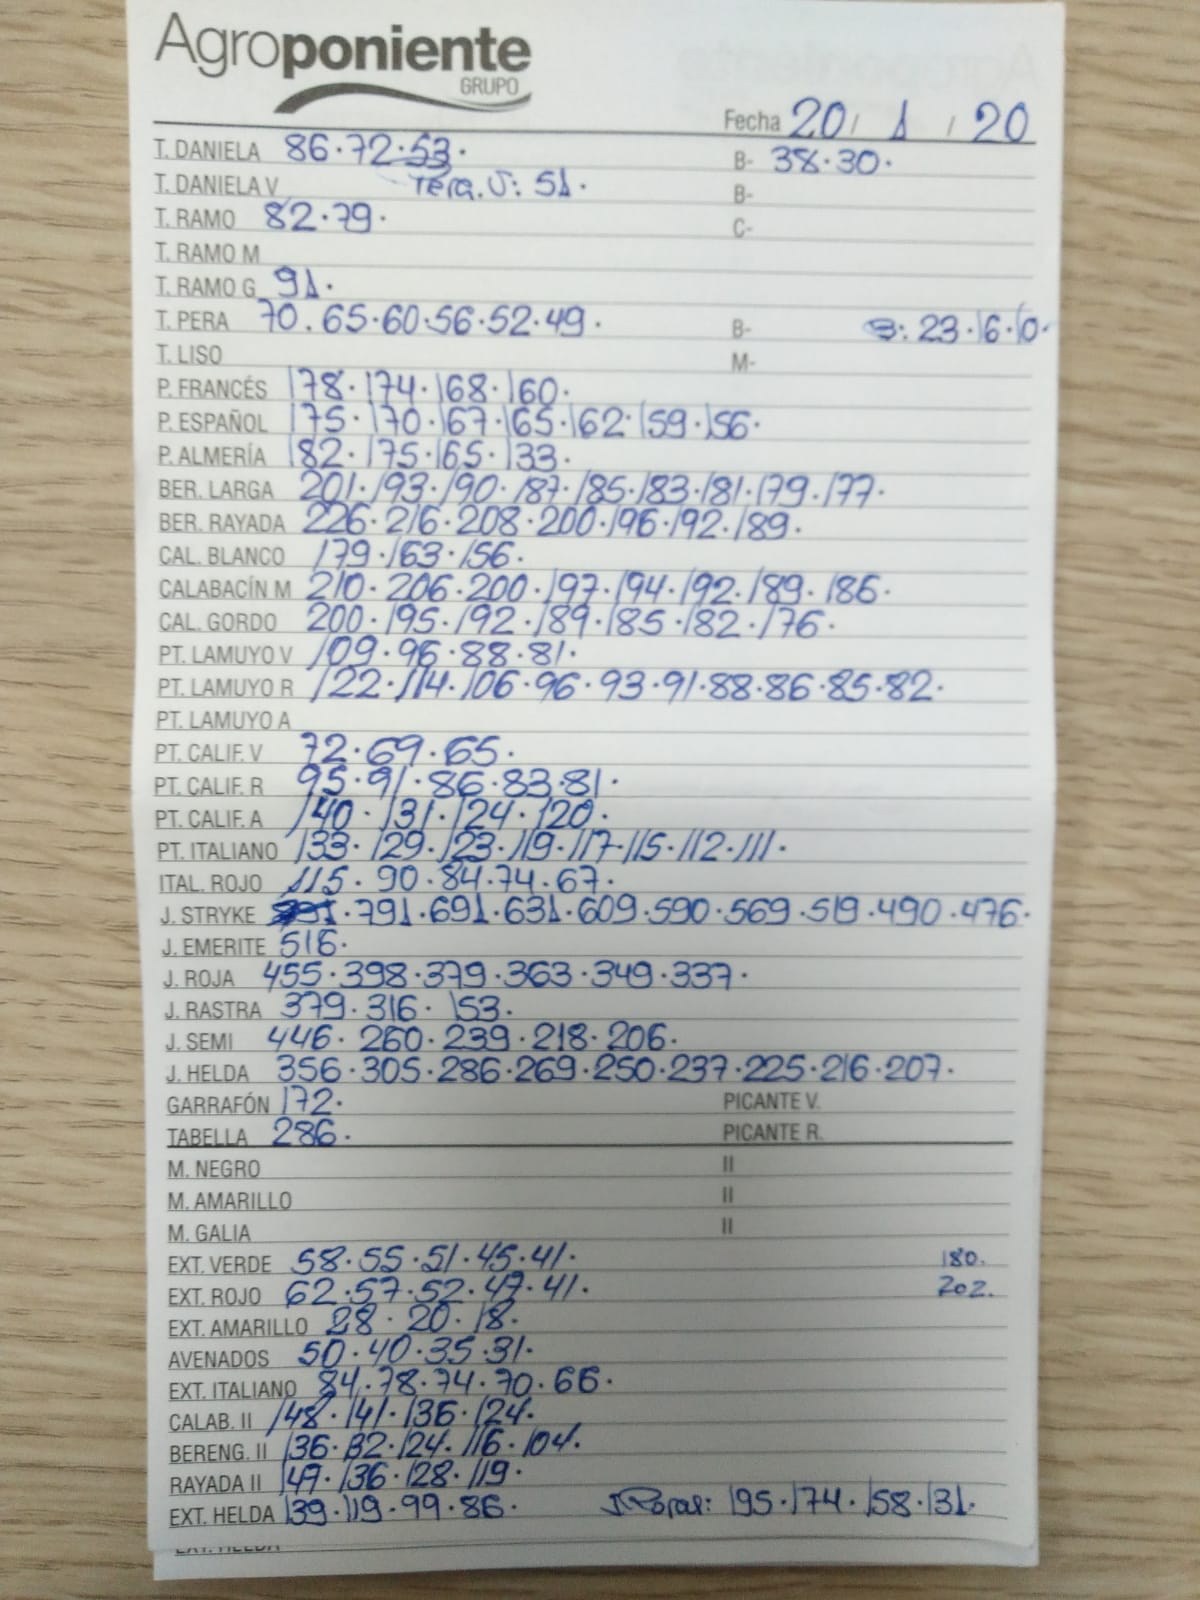 Agroponiente
GRUPO
Fecha 20/ 1 / 20
T. DANIELA 86·72·53· B- 38·30·
T. DANIELA V B-
T. RAMO 82·79· C-
T. RAMO M
T. RAMO G 91·
T. PERA 70.65·60·56·52·49· B- B: 23·16·10·
T. LISO M-
P. FRANCÉS 178·174·168·160·
P. ESPAÑOL 175·170·167·165·162·159·156·
P. ALMERÍA 182·175·165·133·
BER. LARGA 201·193·190·187·185·183·181·179·177·
BER. RAYADA 226·216·208·200·196·192·189·
CAL. BLANCO 179·163·156·
CALABACÍN M 210·206·200·197·194·192·189·186·
CAL. GORDO 200·195·192·189·185·182·176·
PT. LAMUYO V 109·96·88·81·
PT. LAMUYO R 122·114·106·96·93·91·88·86·85·82·
PT. LAMUYO A
PT. CALIF. V 72·69·65·
PT. CALIF. R 95·91·86·83·81·
PT. CALIF. A 140·131·124·120·
PT. ITALIANO 133·129·123·119·117·115·112·111·
ITAL. ROJO 115·90·84·74·67·
J. STRYKE ·791·691·631·609·590·569·519·490·476·
J. EMERITE 516·
J. ROJA 455·398·379·363·349·337·
J. RASTRA 379·316·153·
J. SEMI 446·260·239·218·206·
J. HELDA 356·305·286·269·250·237·225·216·207·
GARRAFÓN 172· PICANTE V.
TABELLA 286· PICANTE R.
M. NEGRO II
M. AMARILLO II
M. GALIA II
EXT. VERDE 58·55·51·45·41· 180.
EXT. ROJO 62·57·52·47·41· 202.
EXT. AMARILLO 28·20·18·
AVENADOS 50·40·35·31·
EXT. ITALIANO 84·78·74·70·66·
CALAB. II 148·141·136·124·
BERENG. II 136·132·124·116·104·
RAYADA II 149·136·128·119·
EXT. HELDA 139·119·99·86· 195·174·158·131·
EXT. HELDA